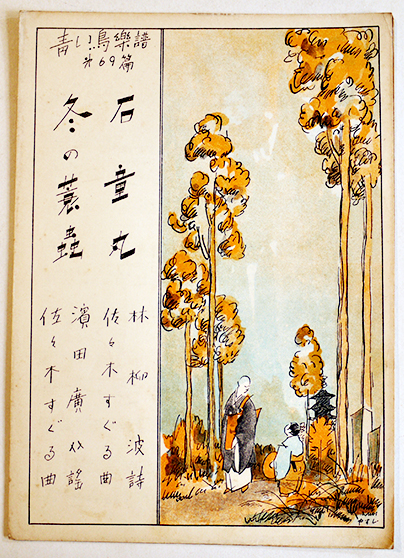 青い鳥樂譜
第69篇
石童丸
冬の蓑蟲
林柳波詩
佐々木すぐる曲
濱田廣介謡
佐々木すぐる曲
やすし